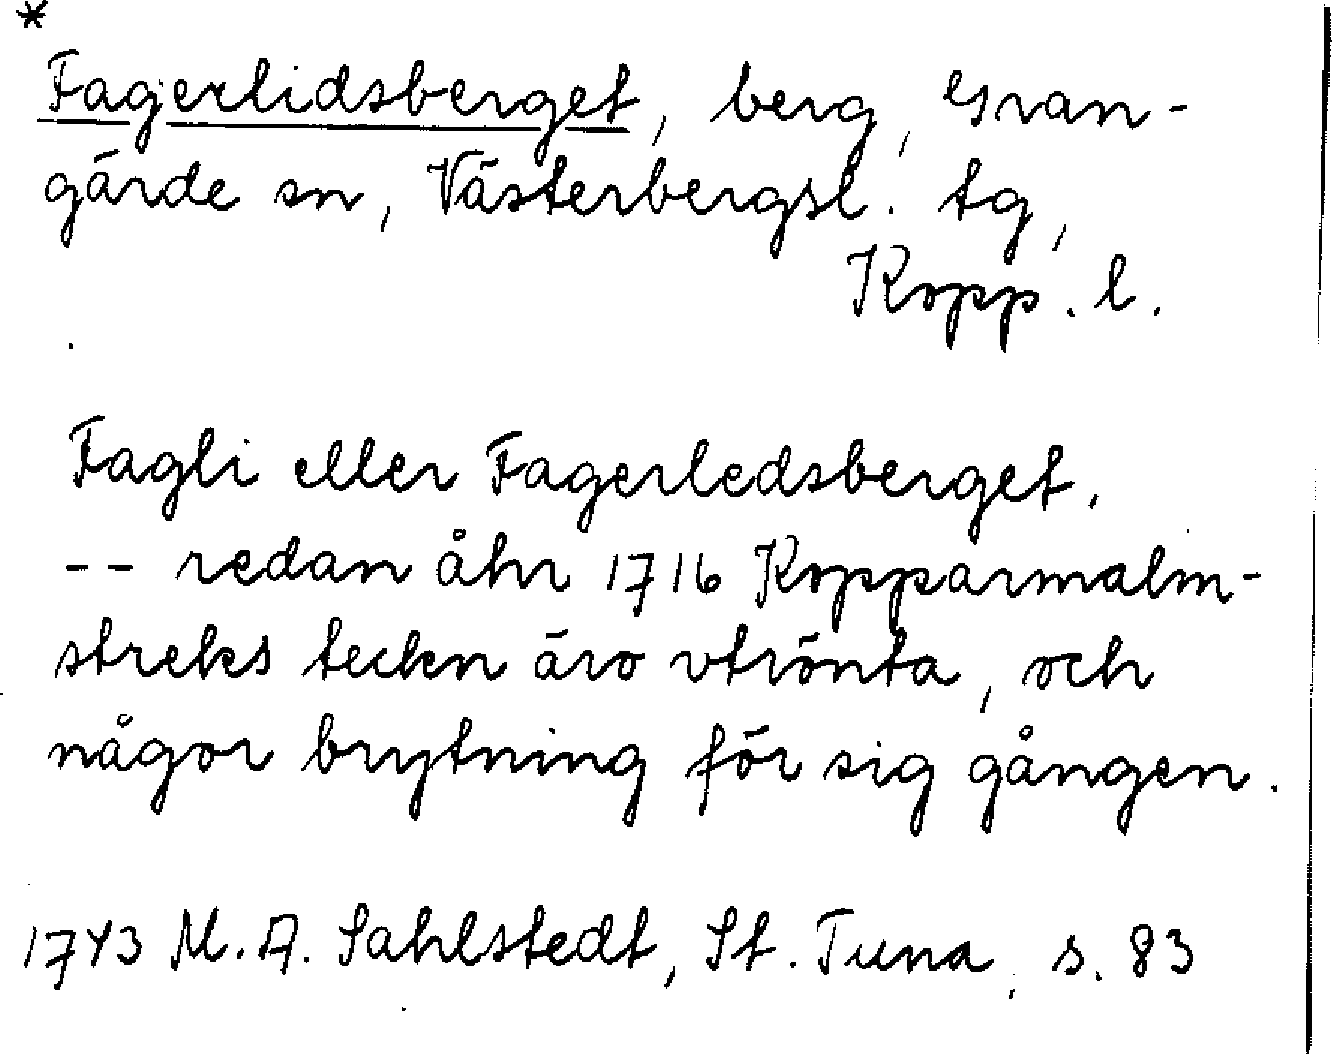 *
Fagerlidsberget, berg, Gran-
gärde sn, Västerbergsl. tg,
Kopp. l.
Fagli eller Fagerledsberget.
-- redan åhr 1716 Kopparmalm-
streks teckn äro vtrönta, och
någor brytning för sig gången.
1743 M. A. Sahlstedt, St. Tuna, s. 83